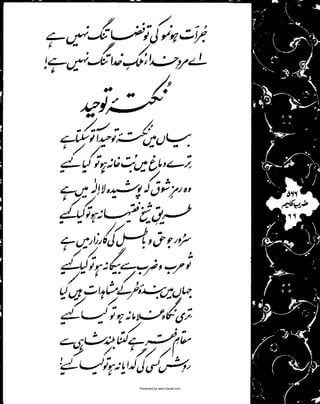 جُرأت ہو نمو کی تو فضا تنگ نہیں ہے
اے مردِ خدا، مُلکِ خدا تنگ نہیں ہے!
نکتۂ توحید
بیاں میں نکتۂ توحید آ تو سکتا ہے
ترے دماغ میں بُت خانہ ہو تو کیا کہیے
وہ رمزِ شوق کہ پوشیدہ لا الٰہ میں ہے
طریقِ شیخ فقیہانہ ہو تو کیا کہیے
سُرور جو حق و باطل کی کارزار میں ہے
تُو حرب و ضرب سے بیگانہ ہو تو کیا کہیے
جہاں میں بندۂ حُر کے مشاہدات ہیں کیا
تری نگاہ غلامانہ ہو تو کیا کہیے
مقامِ فقر ہے کتنا بلند شاہی سے
روِش کسی کی گدایانہ ہو تو کیا کہیے!
۵۷۶
ضربِ کلیم
۶۶